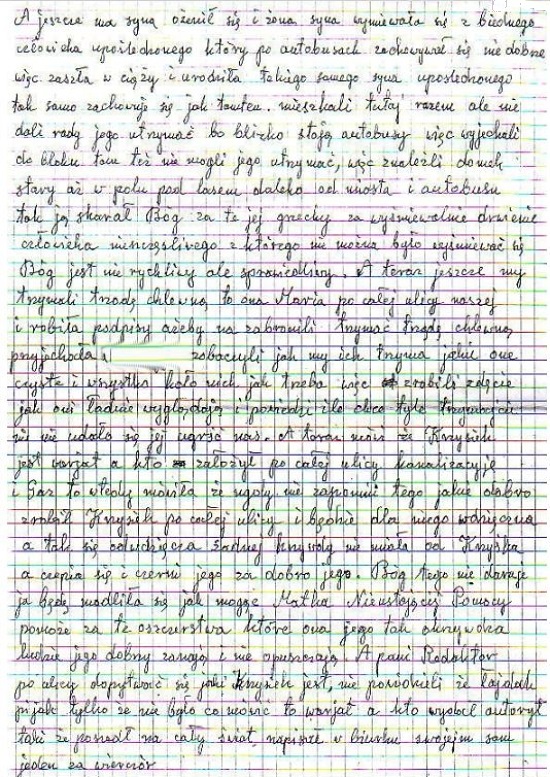 A jeszcze ma syna ożenił się i żona syna wyśmiewała się z biednego
człowieka upośledzonego który po autobusach zachowywał się nie dobrze
więc zaszła w ciąży i urodziła takiego samego syna upośledzonego
tak samo zachowuje się jak tamten. mieszkali tutaj razem ale nie
dali rady jego utrzymać bo blizko stoją autobusy więc wyjechali
do bloku tam też nie mogli jego utrzymać, więc znaleźli domek
stary aż w polu pod lasem daleko od miasta i autobusu
tak ją skarał Bóg za te jej grzechy za wyśmiewalnie drwienie
człowieka nieszczęśliwego z którego nie można było wyśmiewać się
Bóg jest nie rychliwy ale sprawiedliwy. A teraz jeszcze my
trzymali trzodę chlewną to ona Maria po całej ulicy naszej
i robiła podpisy ażeby na zabronili trzymać trzodę chlewną
przyjechała zobaczyli jak my ich trzyma jakie one
czyste i wszystko koło nich jak trzeba więc zrobili zdjęcie
jak oni ładnie wyglądają i powiedzi ile chce tyle trzymajcie
nie udało się jej ugryść nas. A teraz mówi że Krzysiek
jest warjat a kto założył po całej ulicy kanalizację
i Gaz to wtedy mówiła że nigdy nie zapomni tego jakie dobro
zrobił Krzysiek po całej ulicy i będzie dla niego wdzięczna
a tak się odwdzięcza żadnej krzywdy nie miała od Krzyśka
a czepia się i czerni jego za dobro jego. Bóg tego nie daruje
ja będę modliła się jak mogę Matka Nieustającej Pomocy
pomoże za te oszczerstwa które ona jego tak okrywdza
ludzie jego dobry znają i nie opuszczają. A pani Redaktor
po ulicy dopytywać się jaki Krzysiek jest, nie powiedzieli że łajdak
pijak tylko że nie było co mówić to warjat a kto wydał
taki że poszedł na cały świat, napisał w biurku swojem sam
jeden za wierców